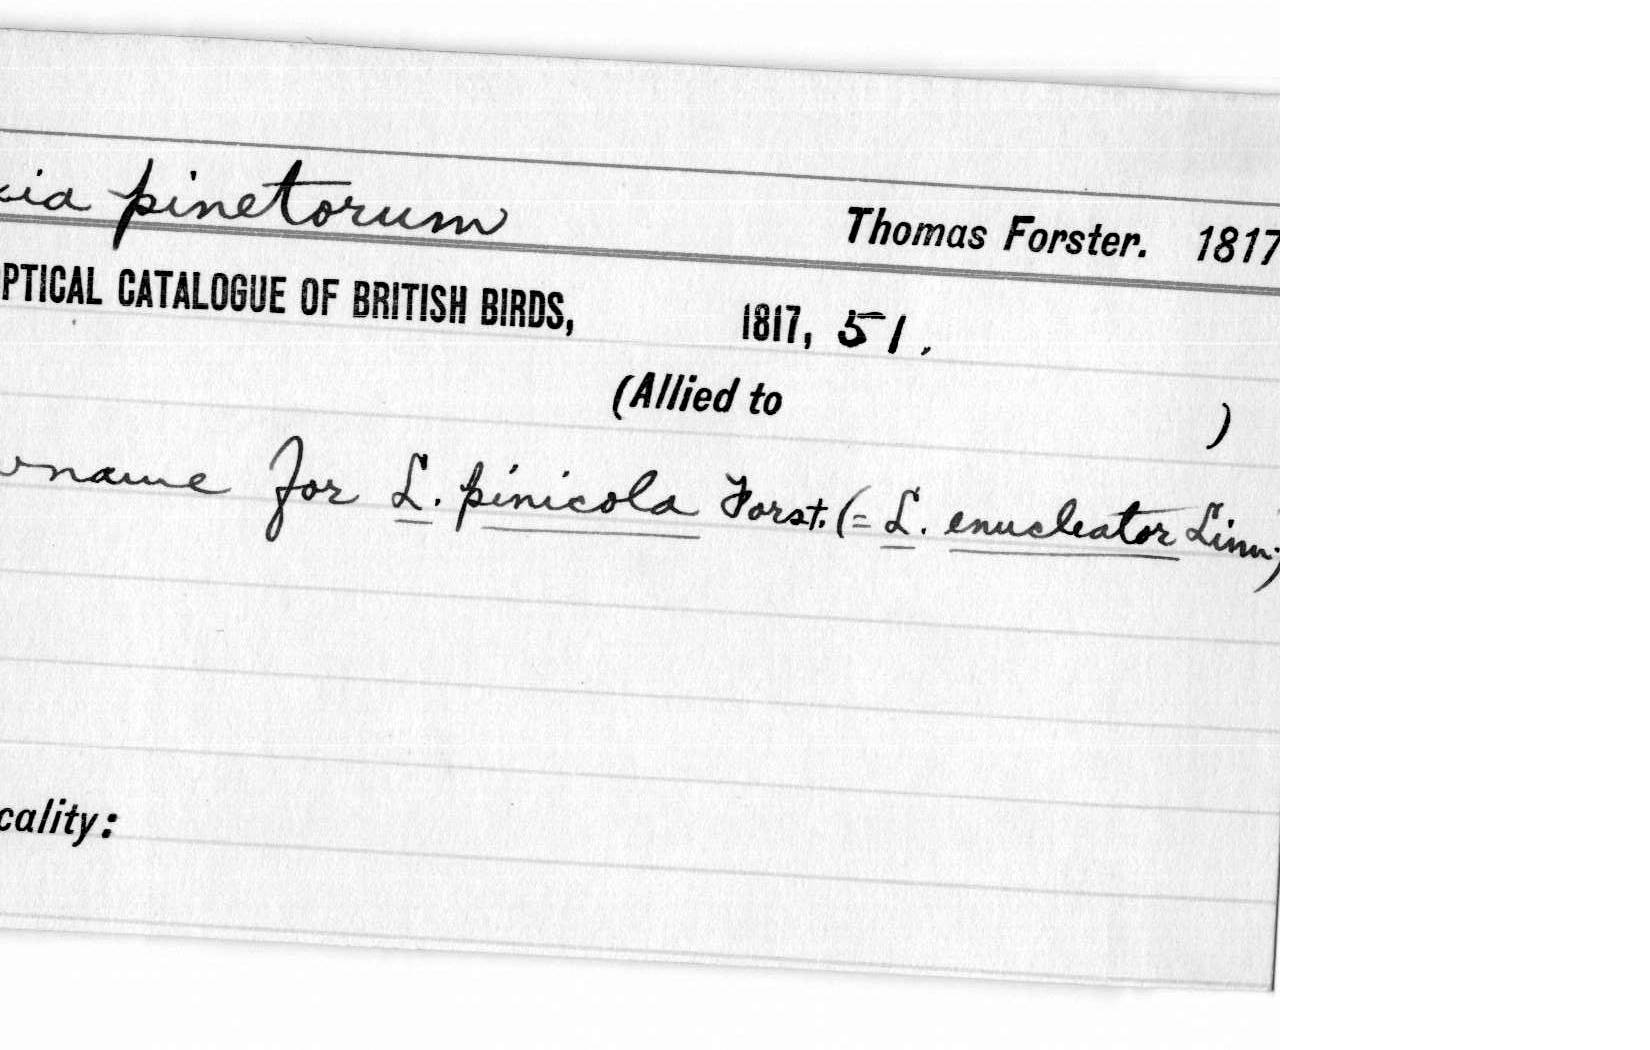 xia pinetorum Thomas Forster. 1817
PTICAL CATALOGUE OF BRITISH BIRDS, 1817, 51.
(Allied to )
name for L. pinicola Forst. (= L. enucleator Linn.)
cality: